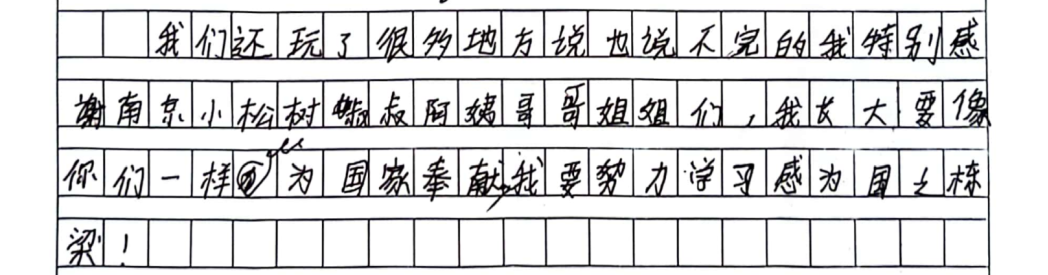 我们还玩了很多地方说也说不完的我特别感
谢南京小松树叔叔阿姨哥哥姐姐们，我长大要像
你们一样为国家奉献，我要努力学习感为国之栋
梁！